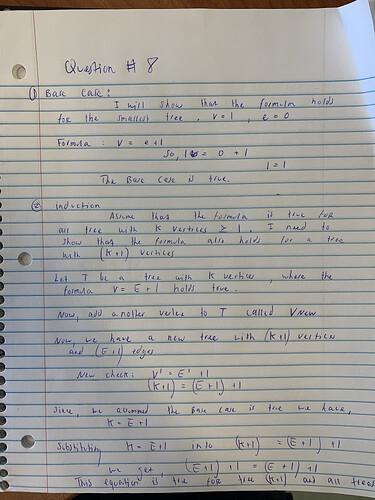 Question # 8
① Base Case:
I will show that the formula holds
for the smallest tree. v = 1, e = 0
Formula: v = e+1
So, 1 = 0 + 1
1 = 1
The Base Case is true.
② Induction
Assume that the formula is true for
all tree with K vertices ≥ 1. I need to
show that the formula also holds for a tree
with (K+1) vertices
Let T be a tree with K vertices, where the
formula V = E + 1 holds true.
Now, add another vertex to T called VNew
Now, we have a new tree with (K+1) vertices
and (E+1) edges
New check: V' = E' + 1
(K+1) = (E+1) + 1
Since, we assumed the Base Case is true we have,
K = E+1
Substituting K = E+1 into (K+1) = (E+1) +1
we get, (E+1) +1 = (E+1) +1
This equation is true for tree (K+1) and all trees